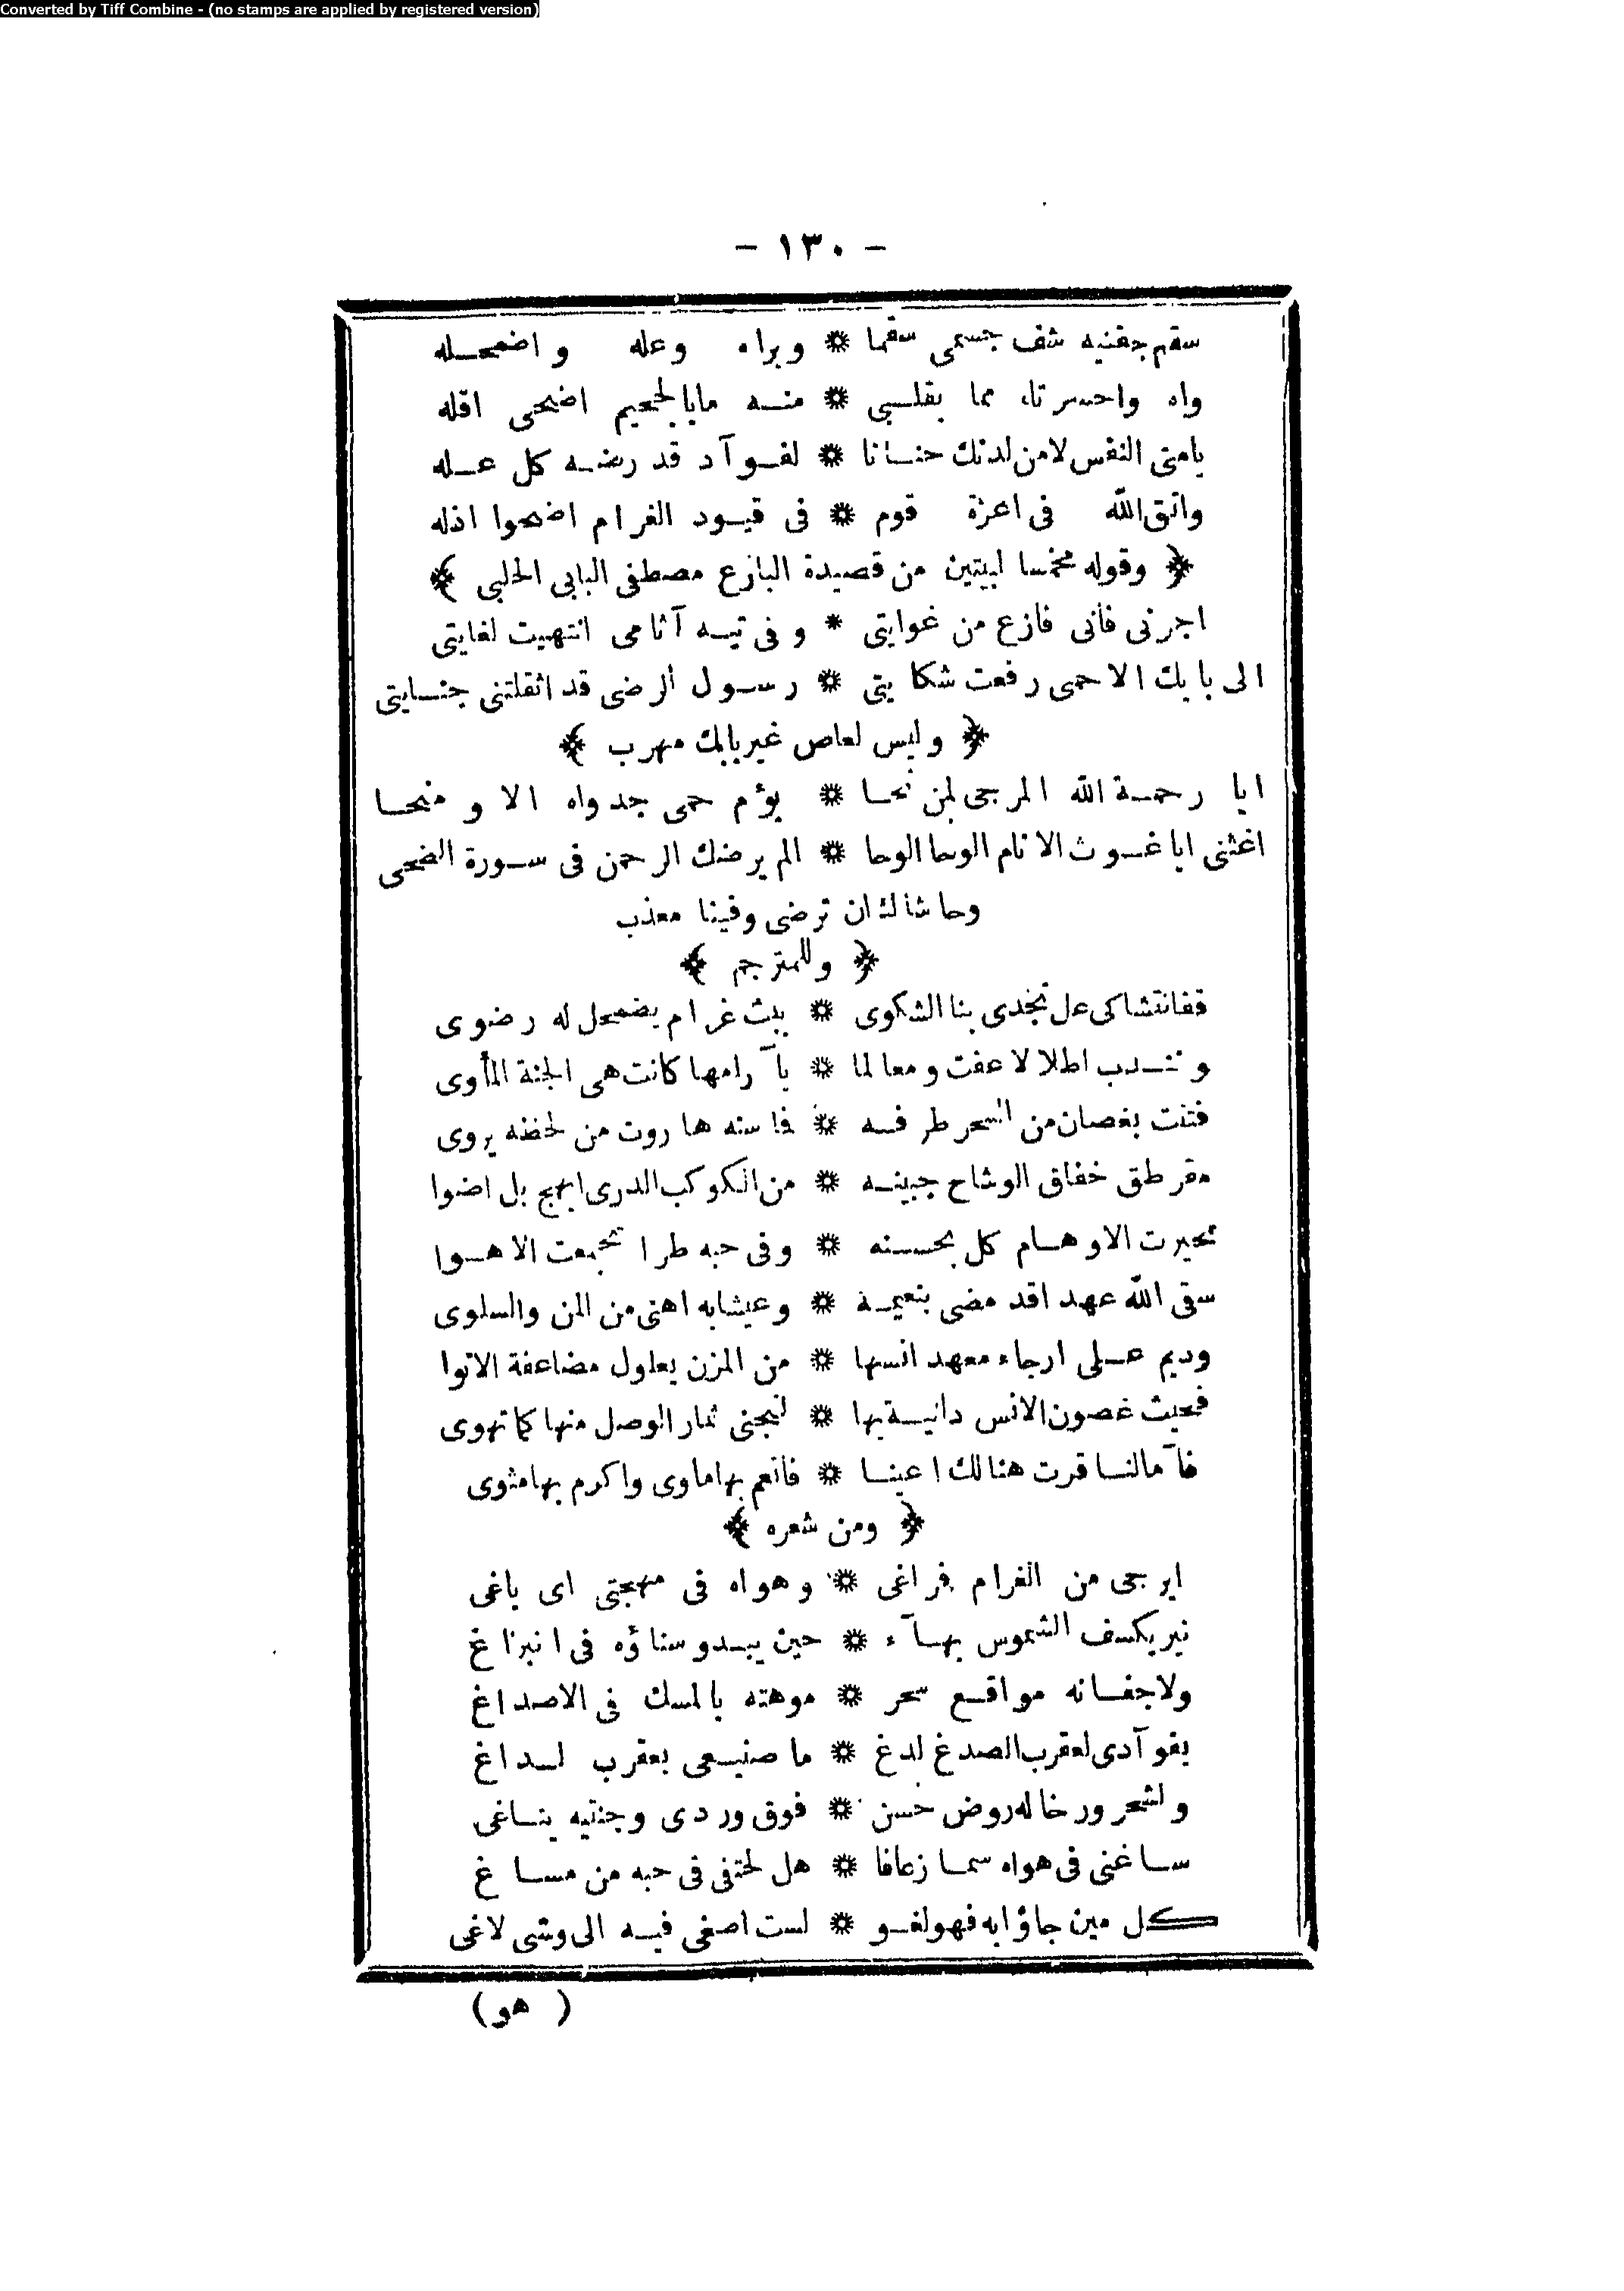 Converted by Tiff Combine - (no stamps are applied by registered version)
- ١٣٠ -
سقم جفنيه شف جسمى سقما * وبراه وعله واضمحله
واه واحسرتاه مما بقلبي * منه مابالجحيم اضحى اقله
يامتى النفس لامن لدنك حنانا * لفوآد قد رضه كل عله
واتق الله فى اعزة قوم * فى قيود الغرام اضحوا اذله
﴿ وقوله مخمسا لبيتين من قصيدة البازع مصطفى البابى الحلبى ﴾
اجرنى فأنى فازع من غوايتى * وفى تيه آثامى انتهيت لغايتى
الى بابك الاحمى رفعت شكايتى * رسول الرضى قد اثقلتنى جنايتى
﴿ وليس لعاص غير بابك مهرب ﴾
ايا رحمة الله المرجى لمن نحا * يؤم حمى جدواه الا ومنحا
اغثنى ايا غوث الانام الوحا الوحا * الم يرضك الرحمن فى سورة الضحى
وحاشاك ان ترضى وفينا معذب
﴿ وللمترجم ﴾
قفا نتشاكى عل تجدى بنا الشكوى * ببث غرام يضمحل له رضوى
وتندب اطلالا عفت ومعالما * بآرامها كانت هى الجنة المأوى
فتنت بغصان من السحر طرفه * فاسنه هاروت من لحظه يروى
مقرطق خفاق الوشاح جبينه * من الكوكب الدرى ابهج بل اضوا
تحيرت الاوهام كل بحسنه * وفى حبه طرا تجمعت الاهوا
سقى الله عهدا قد مضى بنعيمة * وعيشابه اهنى من المن والسلوى
وديم على ارجاء معهد انسها * من المزن يعلول مضاعفة الانوا
فحيث غصون الانس دانية بها * لنجنى ثمار الوصل منها كما تهوى
فآمالنا قرت هنالك اعينا * فانعم بهاماوى واكرم بهامثوى
﴿ ومن شعره ﴾
ايرجى من الغرام فراغى * وهواه فى مهجتى اى باغى
نير يكسف الشموس بهآء * حين يبدو سناؤه فى انبزاغ
ولاجفانه مواقع سحر * موهته بالمسك فى الاصداغ
بفوآدى لعقرب الصدغ لدغ * ما صنيعى بعقرب لداغ
ولشحرور خاله روض حسن * فوق وردى وجنتيه يناغى
ساغنى فى هواه سما زعافا * هل لحتفى فى حبه من مساغ
كل مين جاؤا به فهو لغو * لست اصغى فيه الى وشى لاغى
( هو )